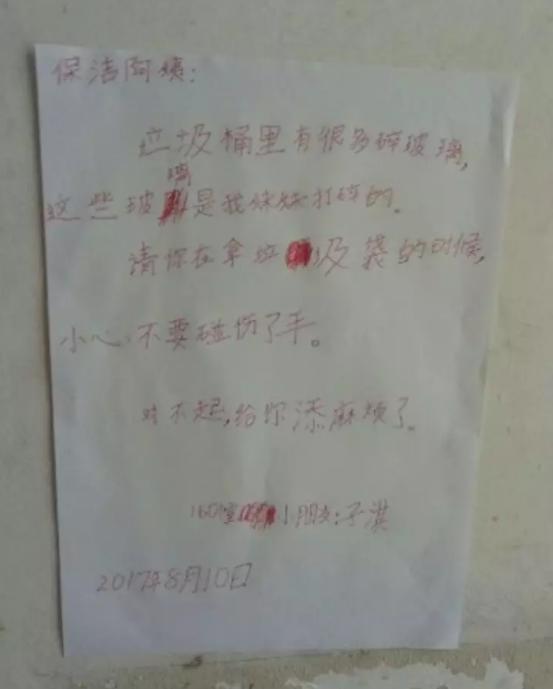 保洁阿姨：
垃圾桶里有很多碎玻璃，
这些玻璃是我妹妹打碎的。
请你在拿垃圾袋的时候，
小心，不要碰伤了手。
对不起，给你添麻烦了。
小朋友：子淇
2017年8月10日